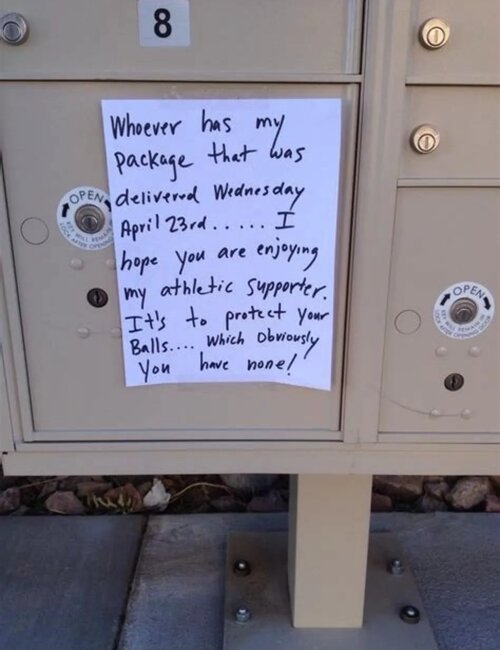 8
Whoever has my
package that was
delivered Wednesday
April 23rd...... I
hope you are enjoying
my athletic supporter.
It's to protect your
Balls.... which Obviously
You have none!
OPEN
KEY WILL REMAIN IN
LOCK AFTER OPENING
OPEN